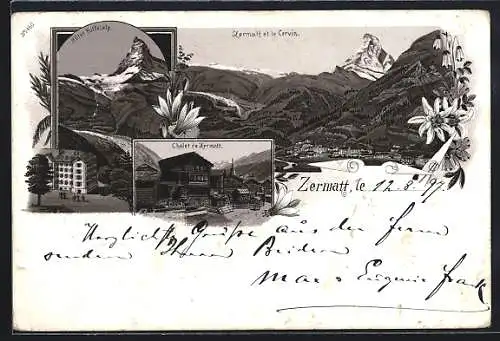 Hôtel Riffelalp.
Zermatt et le Cervin.
Chalet de Zermatt.
Zermatt, le 12.8.97.
Herzliche Grüße aus der Ferne
senden Ihnen Beiden
Max & Eugenie Frank